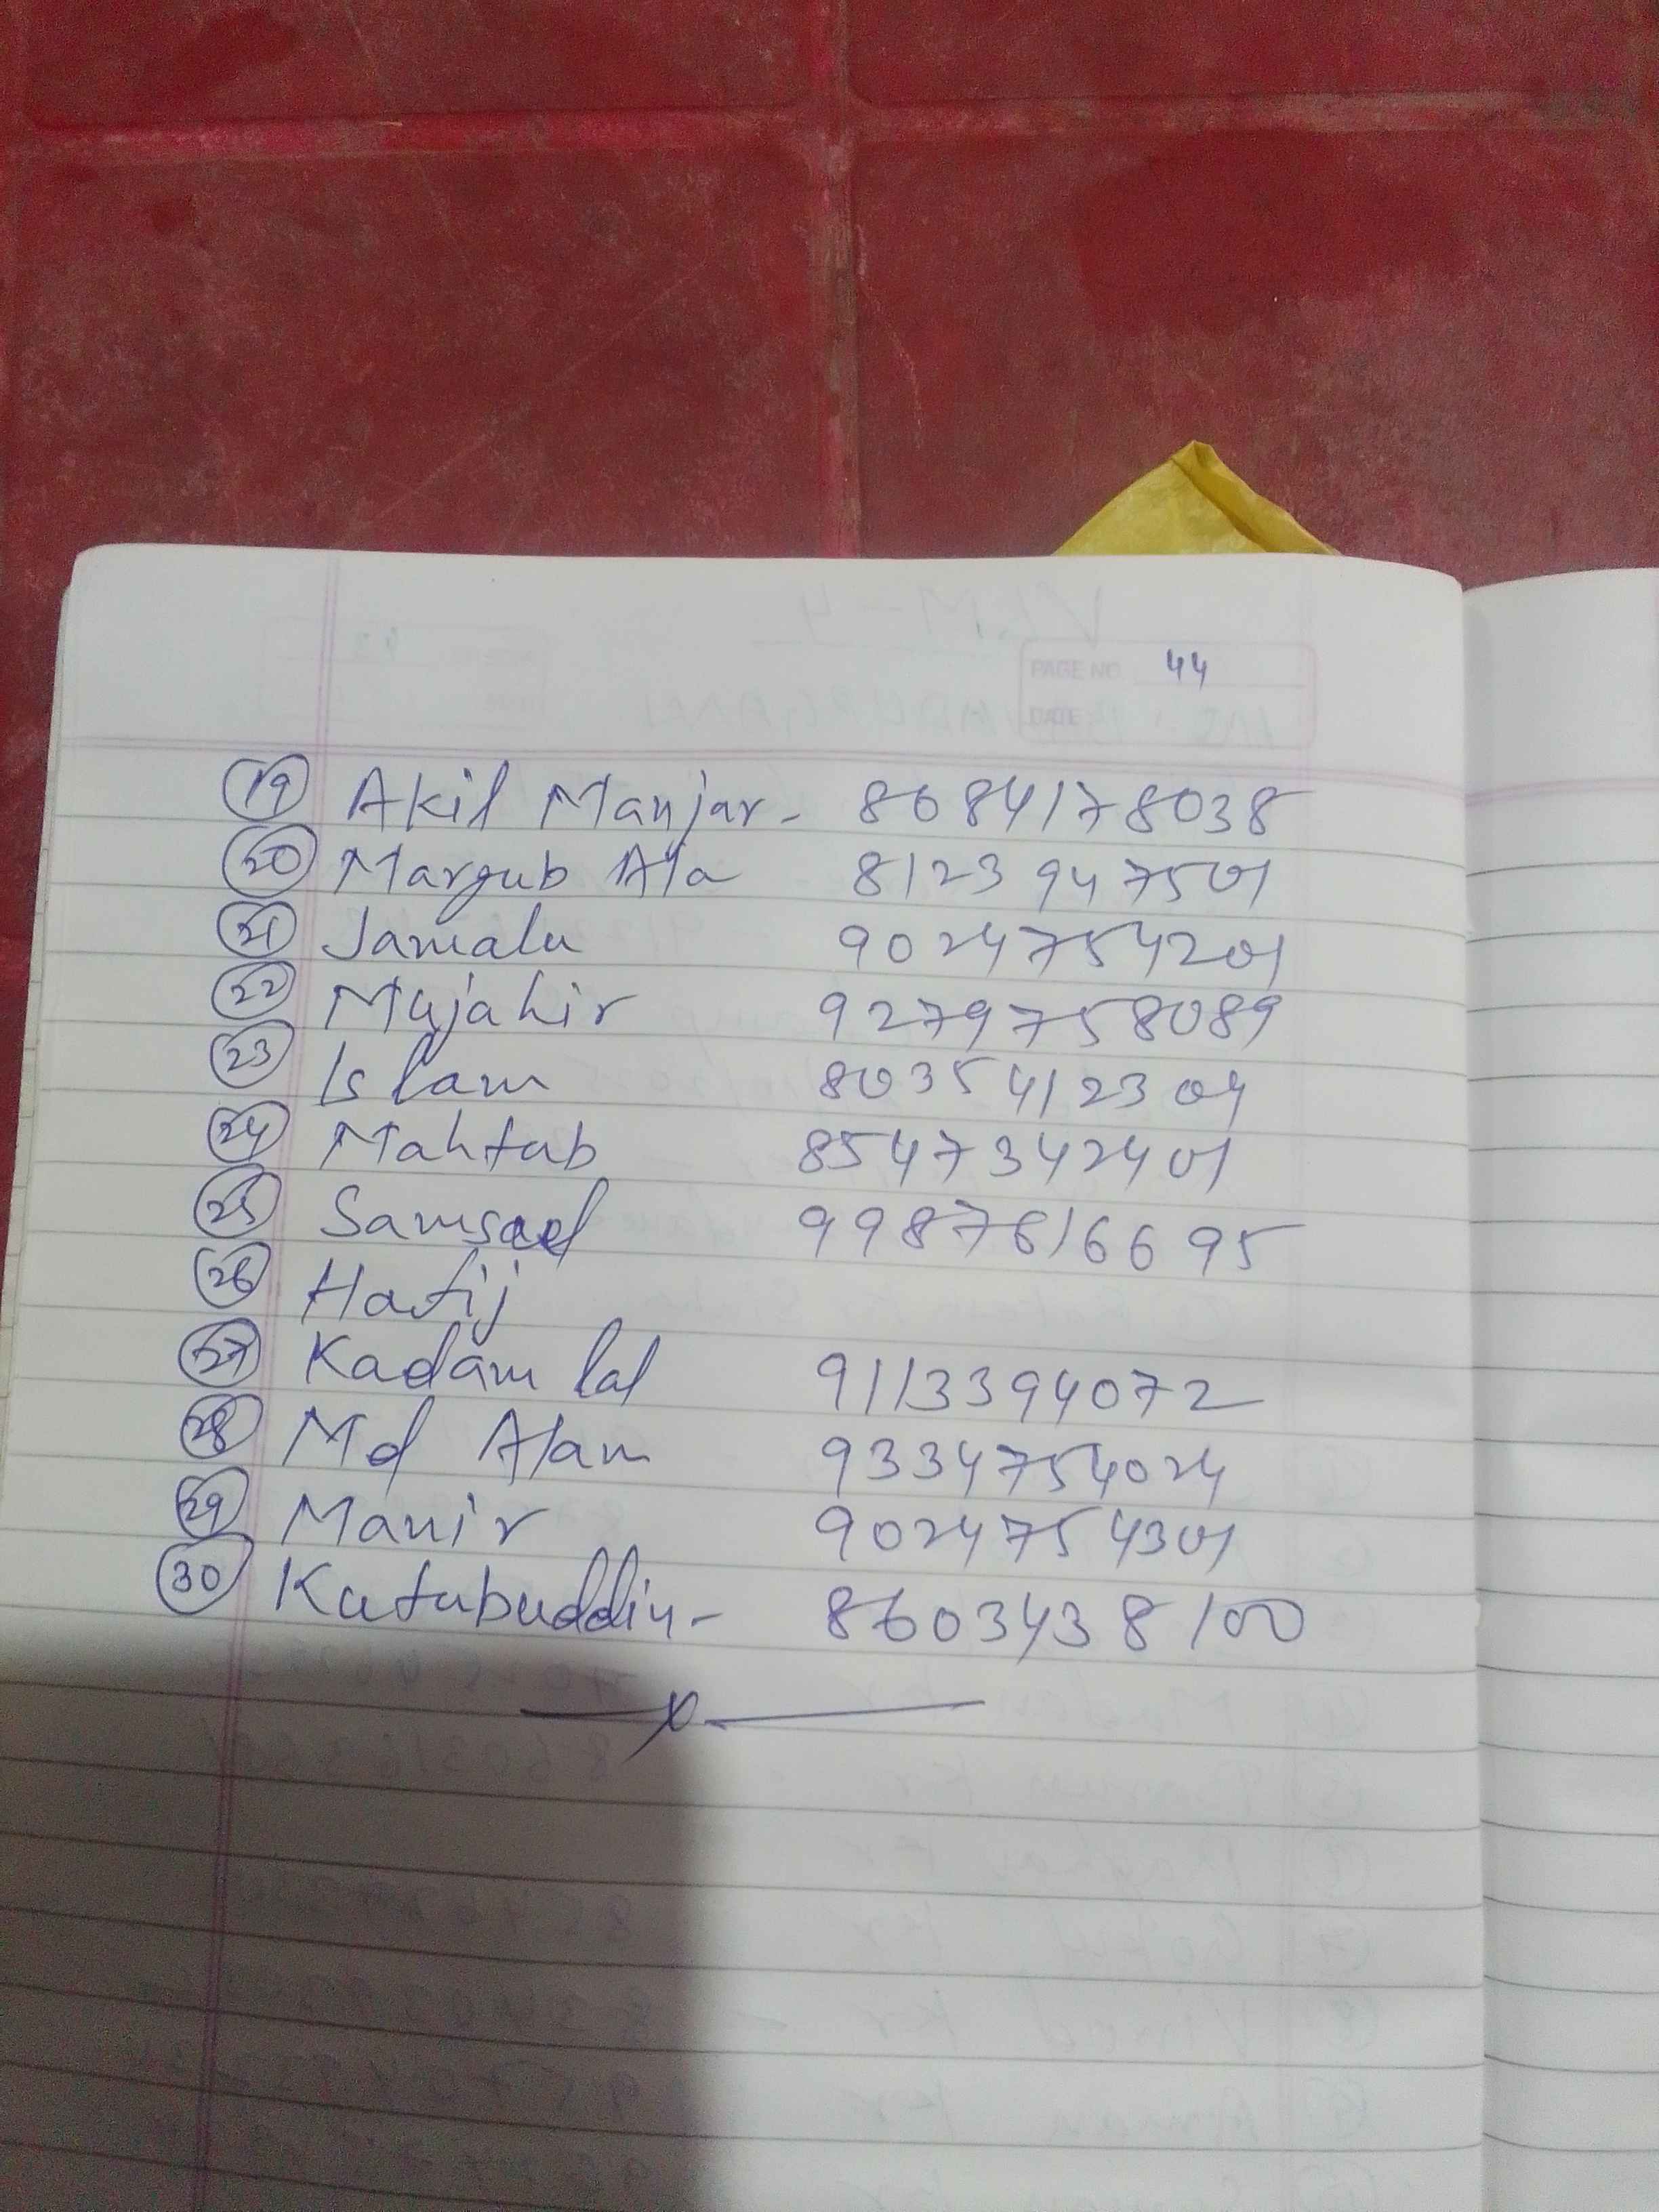 PAGE NO 44
DATE
19 Akil Manjar - 8684178038
20 Margub Ala 8123947501
21 Jamalu 9024754201
22 Mujahir 9279758089
23 Islam 8035412304
24 Mahtab 8547342401
25 Samsad 9987616695
26 Hafij
27 Kadam lal 9113394072
28 Md Alam 9334754024
29 Manir 9024754301
30 Kutubuddin - 8603438100
x